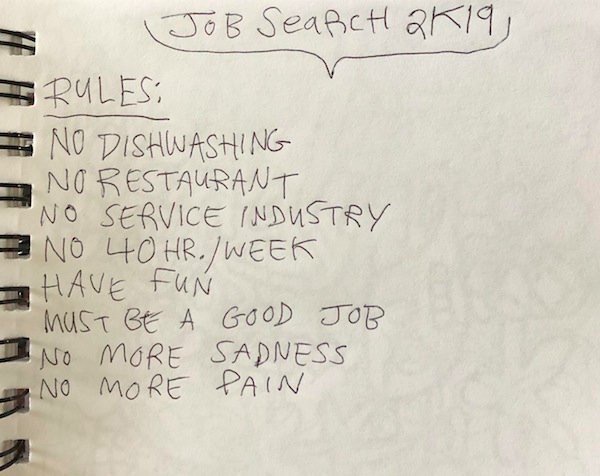 JOB SEARCH 2K19
RULES:
NO DISHWASHING
NO RESTAURANT
NO SERVICE INDUSTRY
NO 40 HR./WEEK
HAVE FUN
MUST BE A GOOD JOB
NO MORE SADNESS
NO MORE PAIN